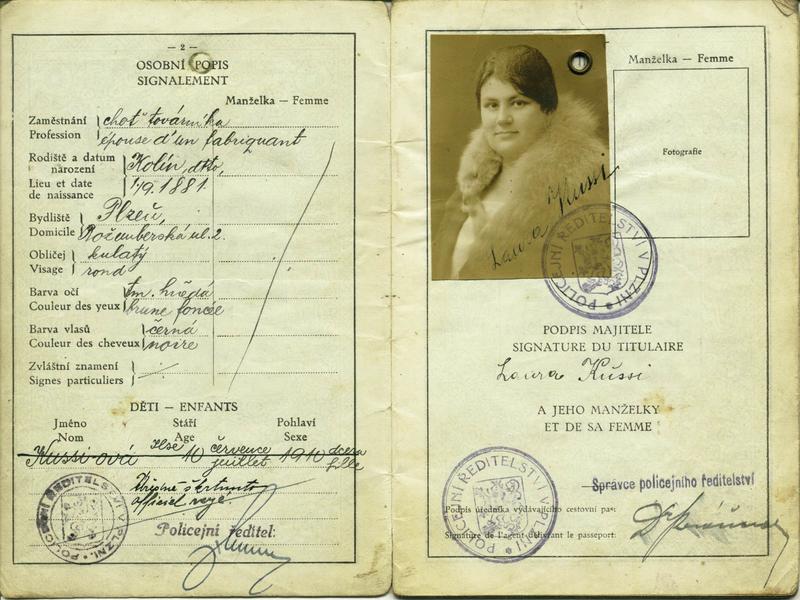 — 2 —
OSOBNÍ POPIS
SIGNALEMENT
Manželka — Femme
Zaměstnání choť továrníka
Profession épouse d'un fabriquant
Rodiště a datum narození Kolín, dtto,
Lieu et date de naissance 1/9. 1881.
Bydliště Plzeň,
Domicile Rožmberská ul. 2.
Obličej kulatý
Visage rond
Barva očí tm. hnědá
Couleur des yeux brune foncée
Barva vlasů černá
Couleur des cheveux noire
Zvláštní znamení
Signes particuliers
DĚTI — ENFANTS
Jméno Stáří Pohlaví
Nom Age Sexe
Kussi-ová Ilse 10 července 1910 dcera
juillet fille
Úředně škrtnuto
officiel rayé.
POLICEJNÍ ŘEDITELSTVÍ V PLZNI
Policejní ředitel:
Manželka — Femme
Fotografie
Laura Kussi
POLICEJNÍ ŘEDITELSTVÍ V PLZNI
PODPIS MAJITELE
SIGNATURE DU TITULAIRE
Laura Kussi
A JEHO MANŽELKY
ET DE SA FEMME
POLICEJNÍ ŘEDITELSTVÍ V PLZNI
Správce policejního ředitelství
Podpis úředníka vydávajícího cestovní pas:
Signature de l'agent délivrant le passeport: